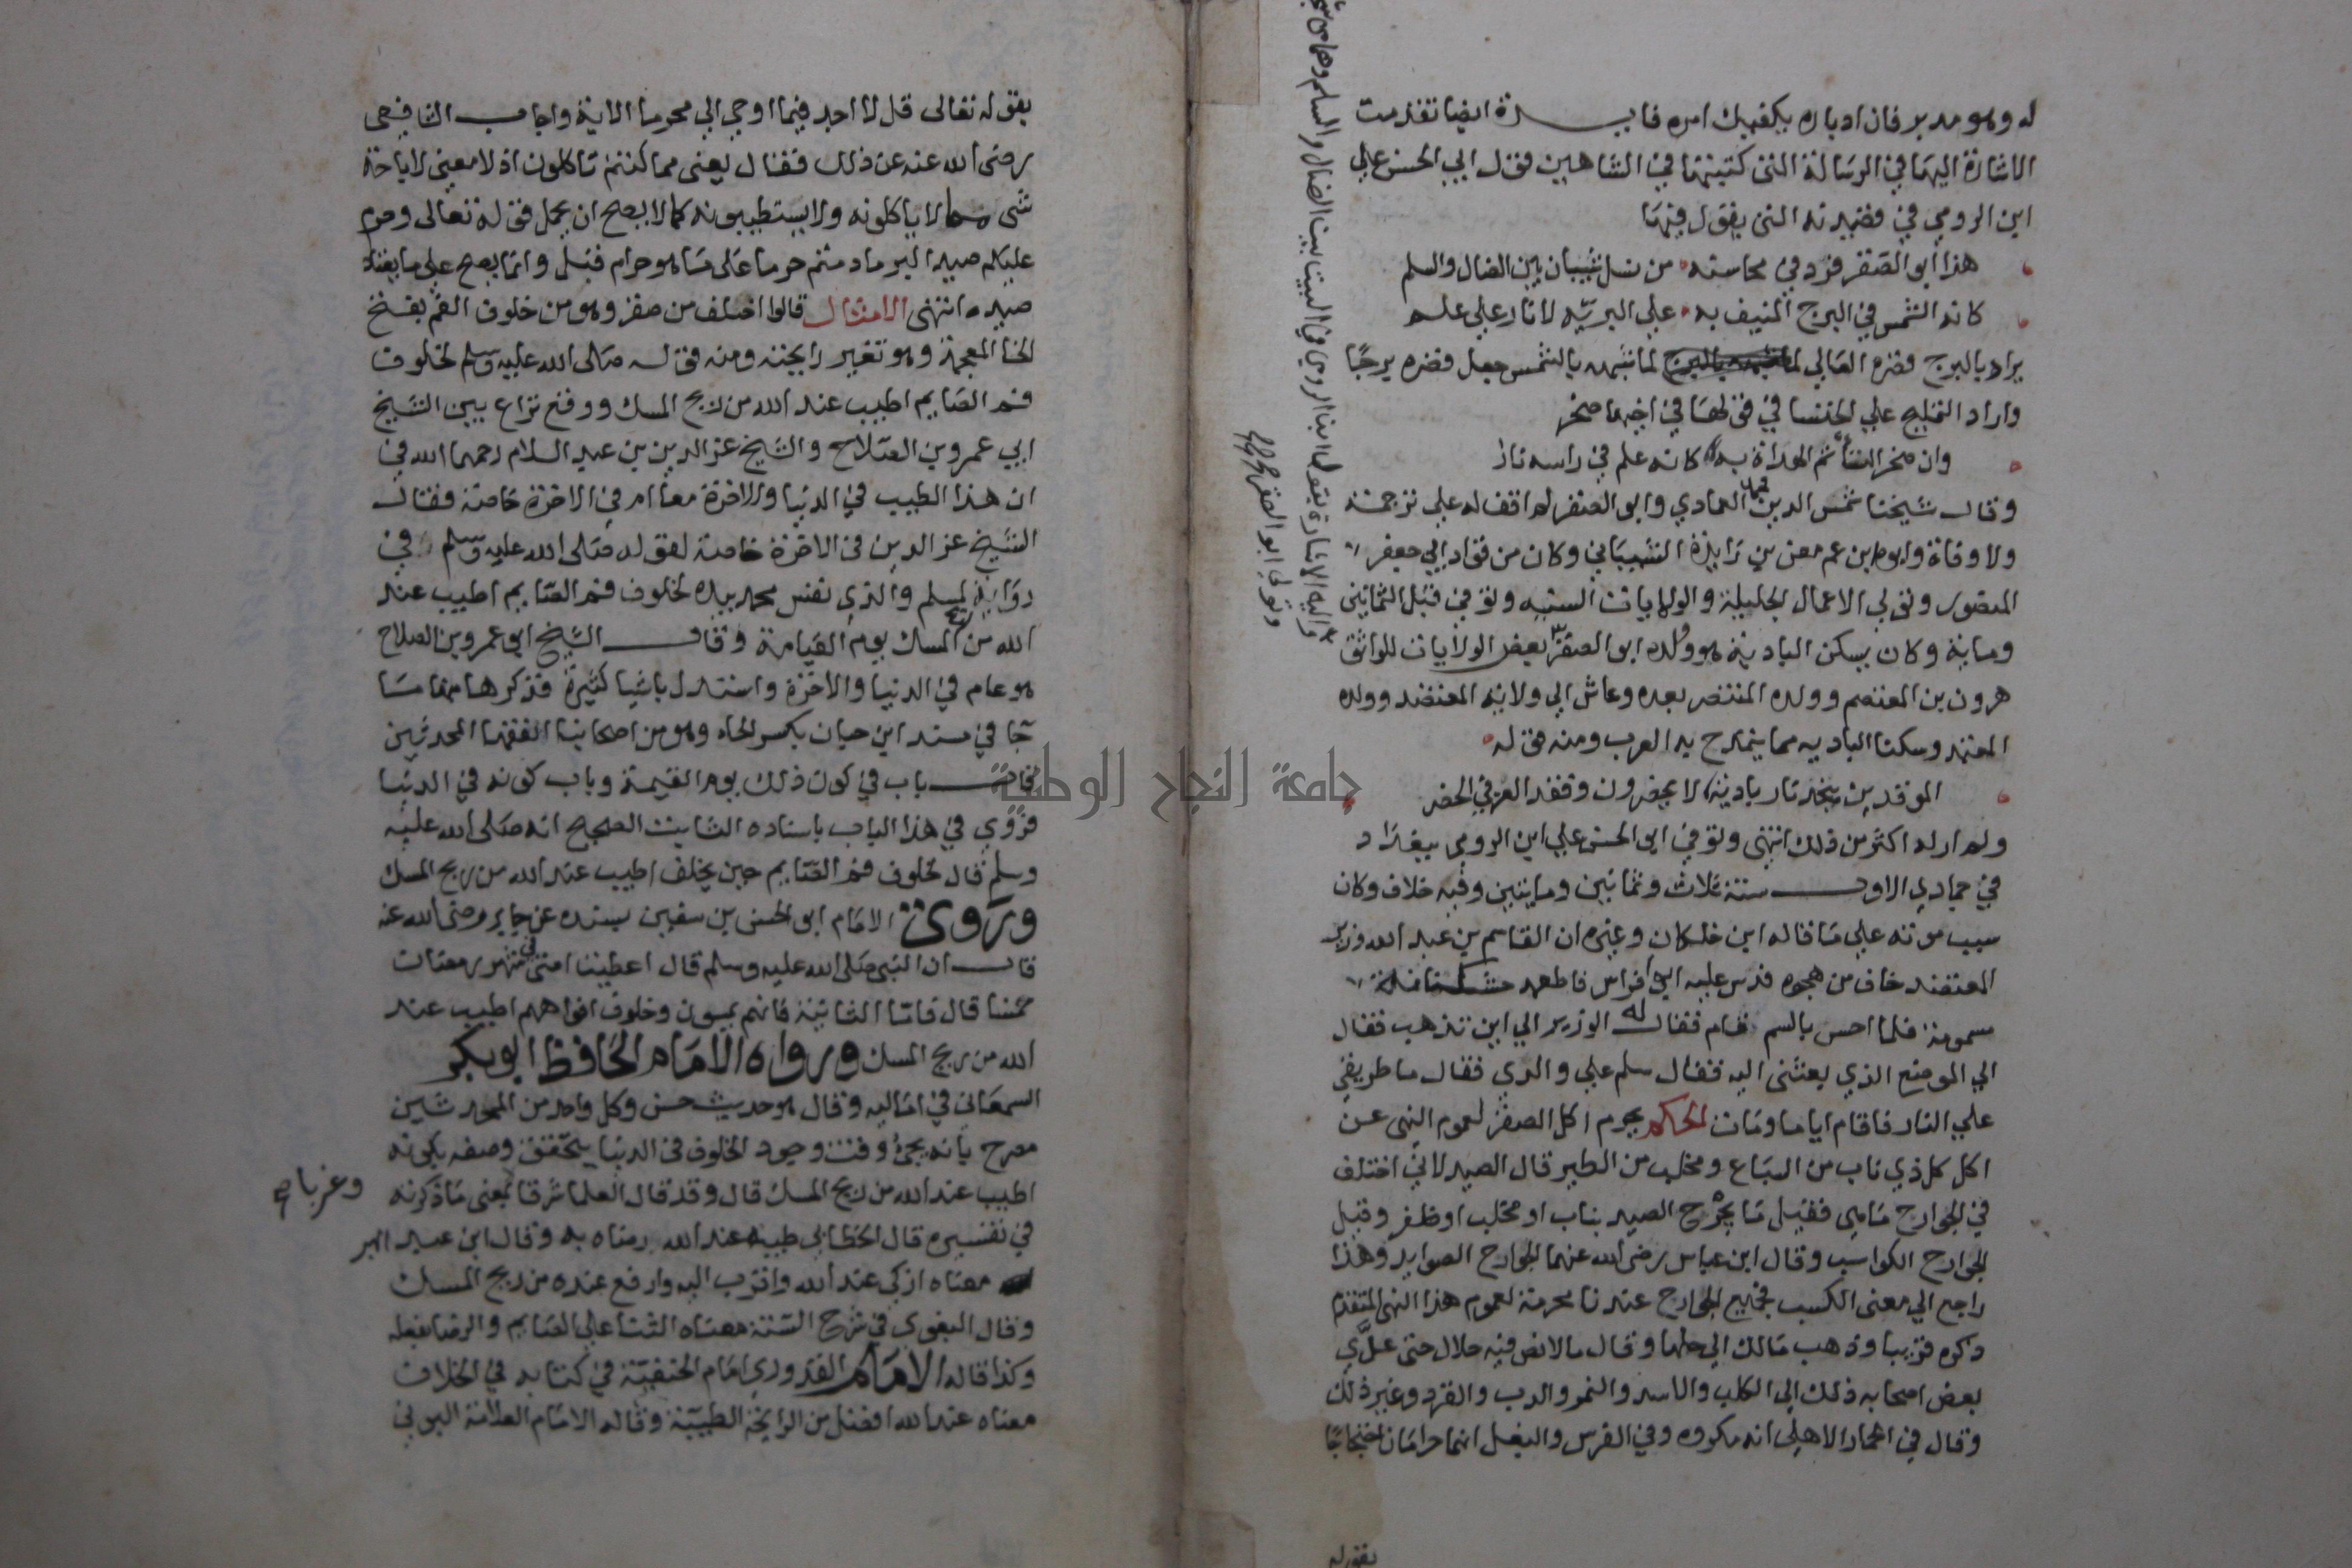 له وهو مدبر فان ادباره يكفيك امره فايـــدة ايضا تقدمت
الاشارة اليها في الرسالة التي كتبتها في الشاهين قول ابي الحسن علي
ابن الرومي في قصيدته التي يقول فيها
هذا ابو الصقر فرد في محاسنه من نسل شيبان بين الضال والسلم
كانه الشمس في البرج المنيف به علي البريه لا نار علي علم
يراد بالبرج قصره العالي لما شبهه بالشمس جعل قصره برجا
واراد التمليح علي الخنسا في قولها في اخيها صخر
وان صخرا لتأتم الهداة به كانه علم في راسه نار
وقال شيخنا شمس الدين محمد العمادي وابو الصقر لم اقف له علي ترجمة
ولا وفاة وابوه ابن عم معن بن زايدة الشيباني وكان من قواد ابي جعفر
المنصور وتولي الاعمال الجليلة والولايات السنيه وتوفي قبل الثمانين
وماية وكان يسكن البادية هو وولده ابو الصقر بعض الولايات للواثق
هرون بن المعتصم وولده المنتصر بعده وعاش الي ولاية المعتضد وولده
المعتمد وسكنا الباديه مما يتمدح به العرب ومنه قوله
الموقدين بنجد نار بادية لا يحضرون وفقد العز في الحضر
ولم ار له اكثر من ذلك انتهى وتوفي ابو الحسن علي ابن الرومي ببغداد
في جمادي الاولـــ سنة ثلاث وثمانين ومايتين وفيه خلاف وكان
سبب موته علي ما قاله ابن خلكان وغيره ان القاسم بن عبد الله وزير
المعتضد خاف من هجوه فدس عليه ابي فراس فاطعمه خشكنانة
مسمومة فلما احس بالسم قام فقال له الوزير الي اين تذهب فقال
الي الموضع الذي بعثتني اليه فقال سلم علي والدي فقال ما طريقي
علي النار فاقام اياما ومات الحكم يحرم اكل الصقر لعموم النهى عن
اكل كل ذي ناب من السباع ومخلب من الطير قال الصيدلاني اختلف
في الجوارح ماهي فقيل ما يجرح الصيد بناب او مخلب او ظفر وقيل
الجوارح الكواسب وقال ابن عباس رضي الله عنهما الجوارح الصوايد وهذا
راجع الي معنى الكسب فجميع الجوارح عندنا محرمة لعموم هذا النهى المتقدم
ذكره قريبا وذهب مالك الي حلها وقال ما لا نص فيه حلال حتى عدّي
بعض اصحابه ذلك الي الكلب والاسد والنمر والدب والقرد وغير ذلك
وقال في الحمار الاهلي انه مكروه وفي الفرس والبغل انهما حرامان احتجاجا
بقوله
واليه الاشارة بقوله ابن الرومي في البيت بين الضال والسلم
وتولي ابو الصقر صح
بقوله تعالى قل لا اجد فيما اوحي الي محرما الاية واجاب الشافعي
رضى الله عنه عن ذلك فقال يعنى مما كنتم تاكلون اذ لا معنى لاباحة
شى مما لا ياكلونه ولا يستطيبونه كما لا يصح ان يحمل قوله تعالى وحرم
عليكم صيد البر ما دمتم حرما على ما هو حرام قبل وانما يصح علي ما يعتاد
صيده انتهى الامثال قالوا اخلف من صقر وهو من خلوف الفم بفتح
الخا المعجمة وهو تغير رايحته ومنه قوله صلى الله عليه وسلم لخلوف
فم الصايم اطيب عند الله من ريح المسك ووقع نزاع بين الشيخ
ابي عمرو بن الصلاح والشيخ عز الدين بن عبد السلام رحمهما الله في
ان هذا الطيب في الدنيا والاخرة معا ام في الاخرة خاصة فقال
الشيخ عز الدين في الاخرة خاصة لقوله صلى الله عليه وسلم في
رواية لمسلم والذي نفس محمد بيده لخلوف فم الصايم اطيب عند
الله من ريح المسك يوم القيامة وقالـــ الشيخ ابو عمرو بن الصلاح
هو عام في الدنيا والاخرة واستدل باشيا كثيرة فذكرها منها ما
جا في مسند ابن حبان بكسر الحاء وهو من اصحابنا الفقها المحدثين
قالـــ باب في كون ذلك يوم القيمة وباب كونه في الدنيا
فروي في هذا الباب باسناده الثابت الصحيح انه صلى الله عليه
وسلم قال لخلوف فم الصايم حين يخلف اطيب عند الله من ريح المسك
وروى الامام ابو الحسن بن سفين بسنده عن جابر رضى الله عنه
قالـــ ان النبى صلى الله عليه وسلم قال اعطيت امتي في شهر رمضان
خمسا قال فاما الثانية فانهم يمسون وخلوف افواههم اطيب عند
الله من ريح المسك ورواه الامام الحافظ ابو بكر
السمعانى في اماليه وقال هو حديث حسن وكل واحد من المحدثين
مصرح بانه يجئ وقت وجود الخلوف في الدنيا يتحقق وصفه بكونه
اطيب عند الله من ريح المسك قال وقد قال العلما شرقا وغربا صح بمعنى ما ذكرته
في تفسيره قال الخطابي طيبه عند الله رضاه به وقال ابن عبد البر
معناه ازكي عند الله واقرب اليه وارفع عنده من ريح المسك
وقال البغوي في شرح السنة معناه الثنا علي الصايم والرضا بفعله
وكذا قاله الامام القدوري امام الحنفية في كتابه في الخلاف
معناه عند الله افضل من الرايحة الطيبة وقاله الامام العلامة البوني
جامعة النجاح الوطنية